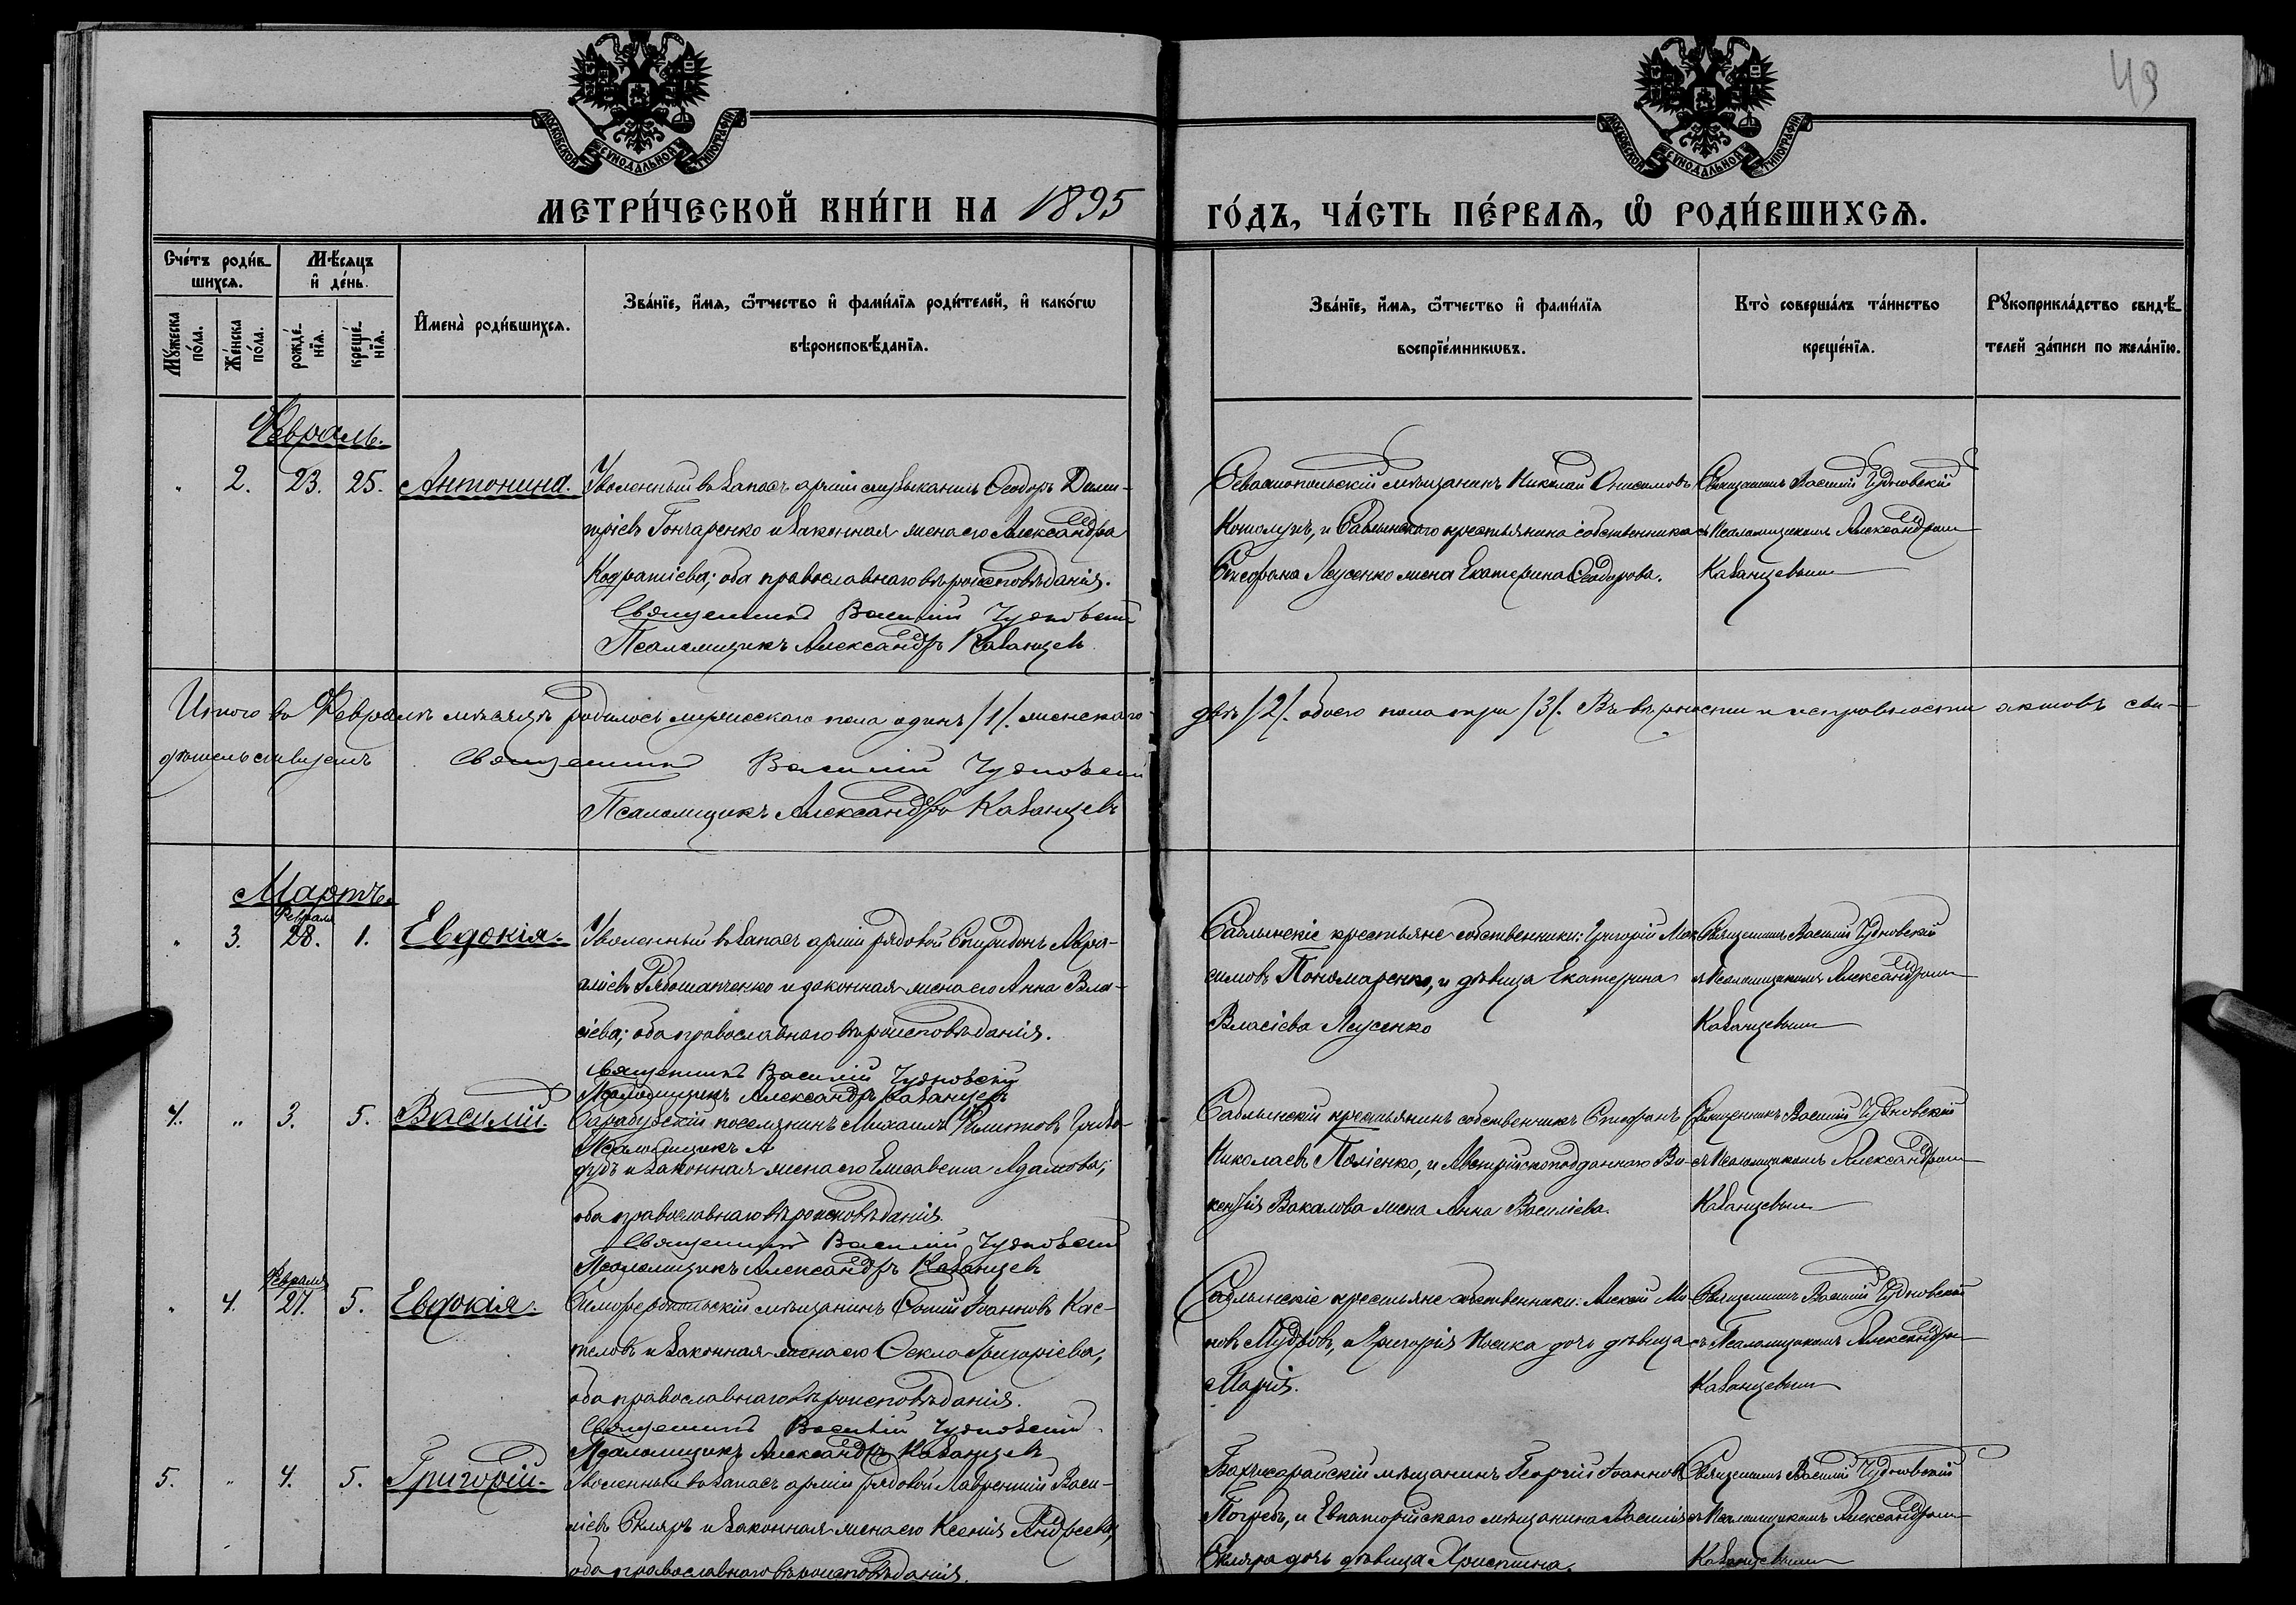 49
МОСКОВСКОЙ СѴНОДАЛЬНОЙ ТИПОГРАФІИ
МОСКОВСКОЙ СѴНОДАЛЬНОЙ ТИПОГРАФІИ
МЕТРИ́ЧЕСКОЙ КНИ́ГИ НА 1895 ГО́ДЪ, ЧА́СТЬ ПЕ́РВАѦ, Ѽ РОДИ́ВШИХСѦ.
Сче́тъ роди́в
шихсѧ.
Мѣ́сѧцъ
и҆ де́нь.
Мꙋ́жеска
по́ла.
Же́нска
по́ла.
рожде́
нїѧ.
креще́
нїѧ.
И҆мена̀ роди́вшихсѧ.
Зва́нїе, и҆́мѧ, ѻ҆́тчество и҆ фами́лїѧ роди́телей, и҆ како́гѡ
вѣроисповѣ́данїѧ.
Зва́нїе, и҆́мѧ, ѻ҆́тчество и҆ фами́лїѧ
воспрїе́мникѡвъ.
Кто̀ соверша́лъ та́инство
креще́нїѧ.
Рꙋкоприкла́дство свидѣ́
телей за́писи по жела́нїю.
Февраль.
" 2. 23. 25. Антонина.
Уволенный въ запасъ арміи музыкантъ Ѳеодоръ Дими-
тріевъ Гончаренко и законная жена его Александра
Кодратіева; оба православнаго вѣроисповѣданія.
Священникъ Василій Чудновскій
Псаломщикъ Александръ Казанцевъ
Севастопольскій мѣщанинъ Николай Онисимовъ
и Саблынскаго крестьянина собственника
Стефана Лусенко жена Екатерина Ѳеодорова.
Священникъ Василій Чудновскій
съ Псаломщикомъ Александромъ
Казанцевымъ
Итого въ Февралѣ мѣсяцѣ родилось мужескаго пола одинъ /1/. женскаго двѣ /2/. обоего пола три /3/. Въ вѣрности и исправности актовъ сви-
дѣтельствуемъ Священникъ Василій Чудновскій
Псаломщикъ Александръ Казанцевъ
Мартъ.
Февраля
" 3. 28. 1. Евдокія.
Уволенный въ запасъ арміи рядовой Спиридонъ
Рябошапченко и законная жена его Анна Вла-
сіева; оба православнаго вѣроисповѣданія.
Священникъ Василій Чудновскій
Псаломщикъ Александръ Казанцевъ
Саблынскіе крестьяне собственники: Григорій Мак
симовъ Пономаренко, и дѣвица Екатерина
Власіева Лусенко
Священникъ Василій Чудновскій
съ Псаломщикомъ Александромъ
Казанцевымъ
4. " 3. 5. Василій.
Сарабузскій поселянинъ Михаилъ Филиповъ
Псаломщикъ А
и законная жена его Елисавета Адамова;
оба православнаго вѣроисповѣданія.
Священникъ Василій Чудновскій
Псаломщикъ Александръ Казанцевъ
Саблынскій крестьянинъ собственникъ Стефанъ
Николаевъ Поліенко, и Австрійскоподданнаго Ви-
кентія Вакалова жена Анна Василіева.
Священникъ Василій Чудновскій
съ Псаломщикомъ Александромъ
Казанцевымъ
Февраля
" 4. 27. 5. Евдокія.
Симферопольскій мѣщанинъ Фотій Іоанновъ Кас-
теловъ и законная жена его Ѳекла Григоріева,
оба православнаго вѣроисповѣданія.
Священникъ Василій Чудновскій
Псаломщикъ Александръ Казанцевъ
Саблынскіе крестьяне собственники: Алексій Ми-
новъ Мудровъ, и Григорія Носика дочь дѣвица
Марія.
Священникъ Василій Чудновскій
съ Псаломщикомъ Александромъ
Казанцевымъ
5. " 4. 5. Григорій.
Уволенный въ запасъ арміи рядовой Лаврентій Васи-
ліевъ Скляръ и законная жена его Ксенія Андреева,
оба православнаго вѣроисповѣданія.
Бахчисарайскій мѣщанинъ Георгій Іоанновъ
Погребъ, и Евпаторійскаго мѣщанина Василія
Скляра дочь дѣвица Христина.
Священникъ Василій Чудновскій
съ Псаломщикомъ Александромъ
Казанцевымъ